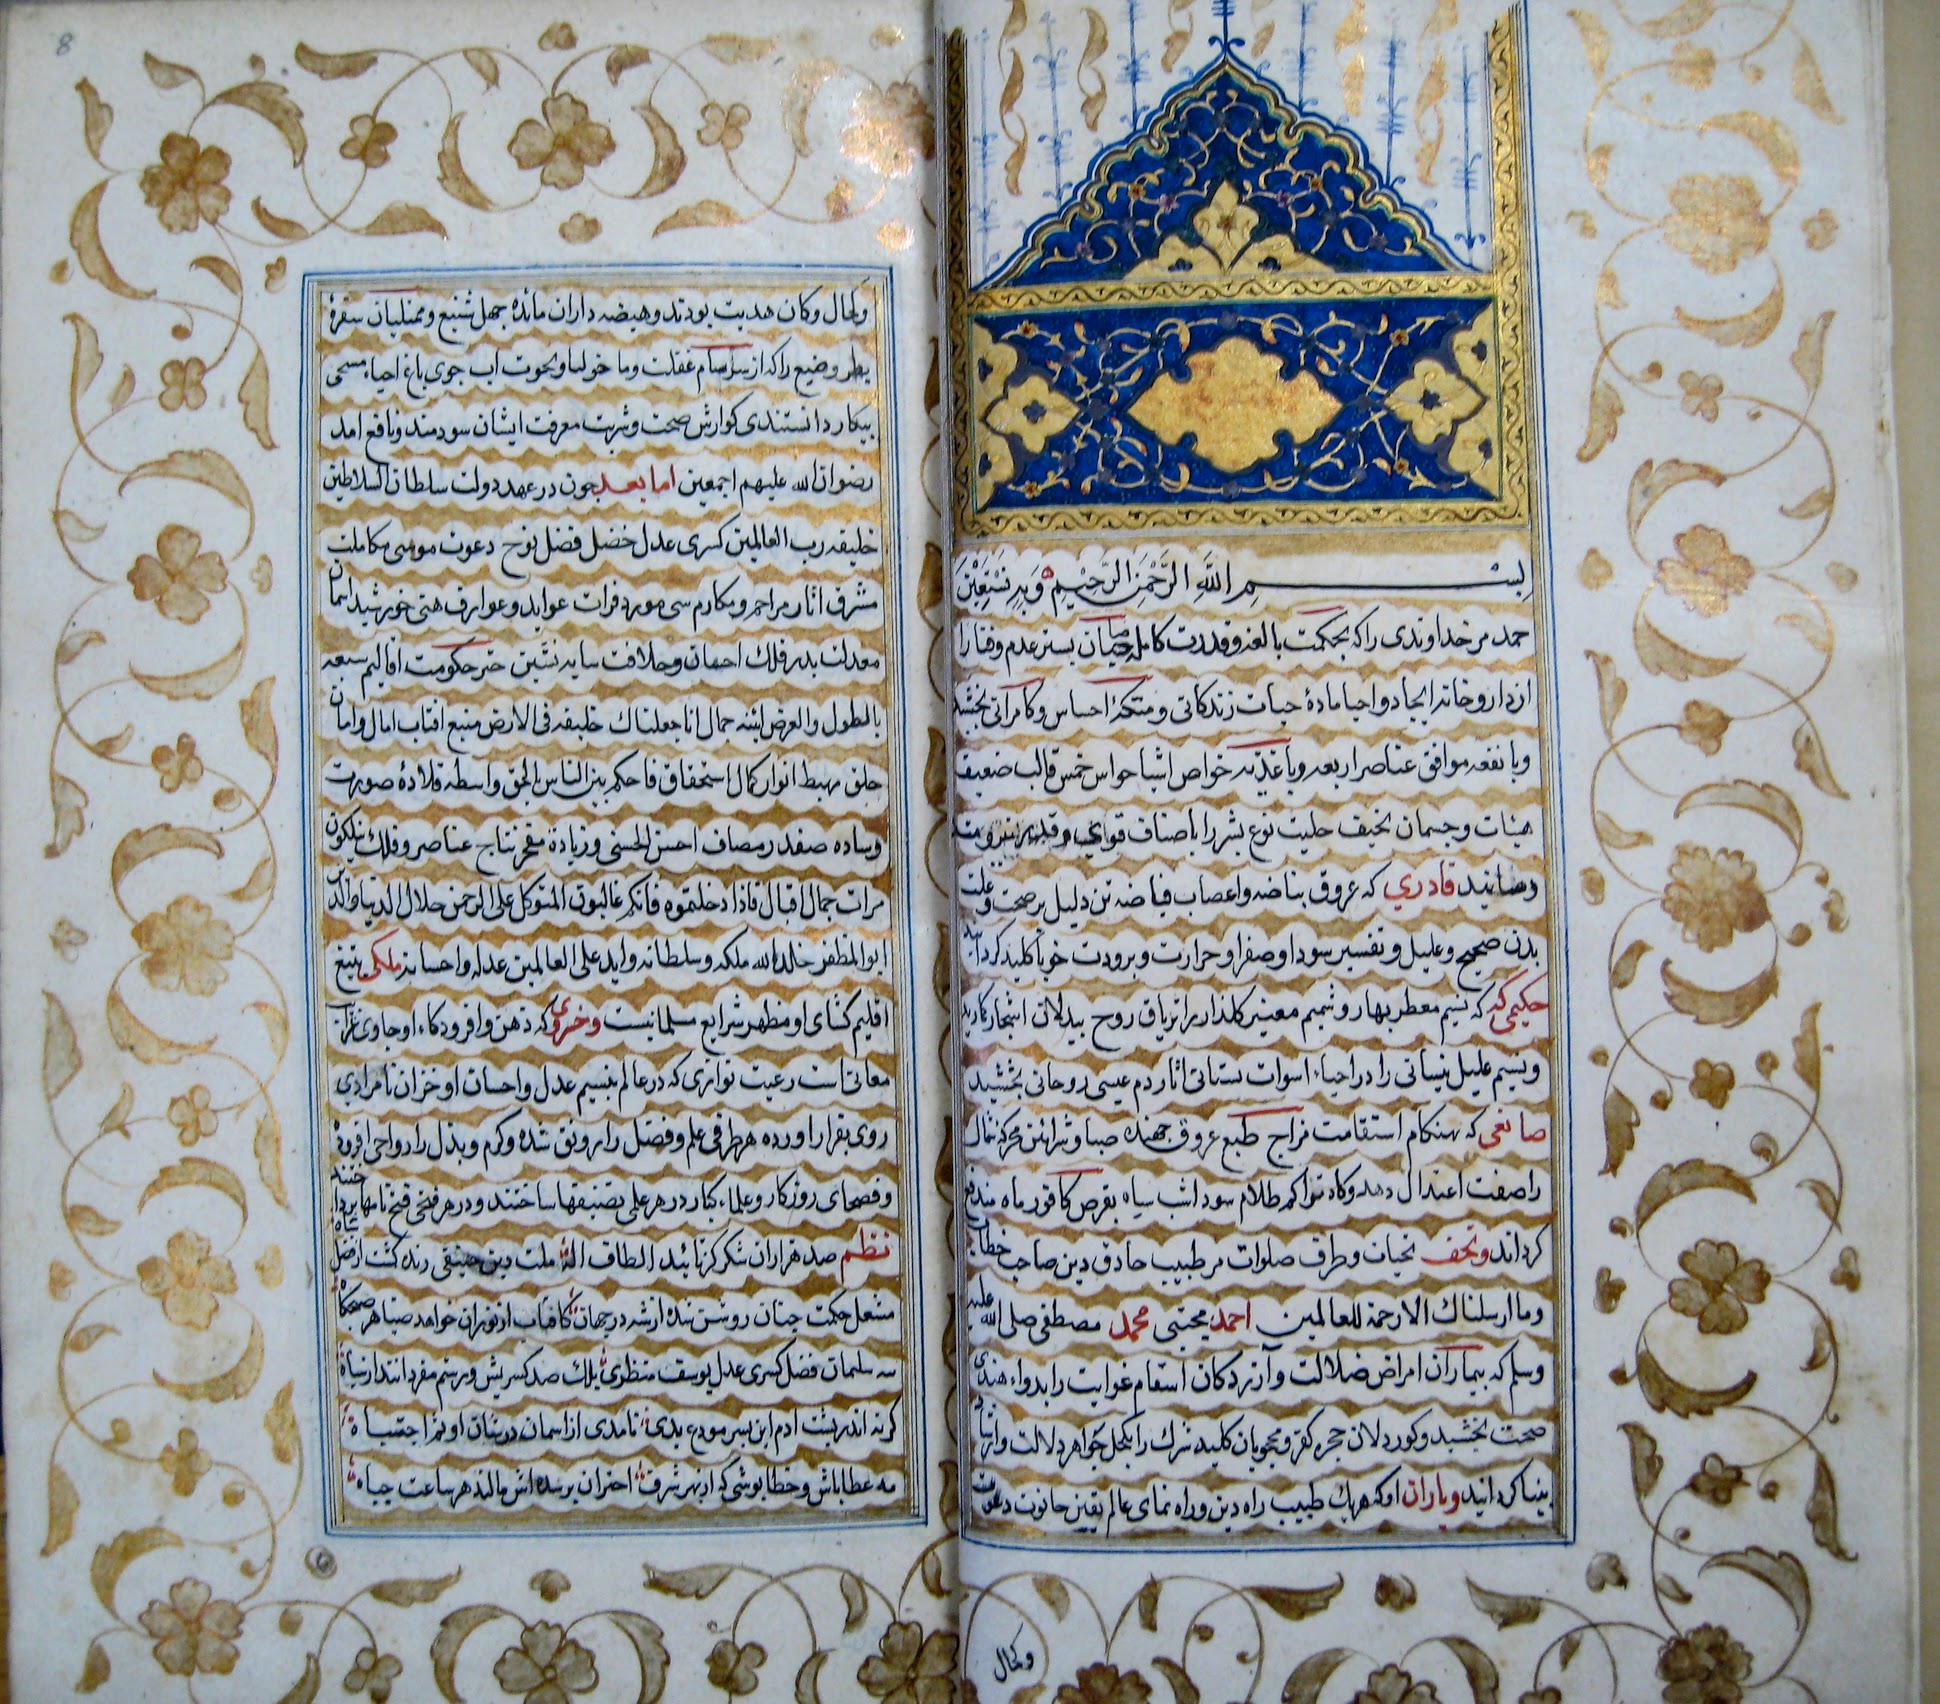 بسم الله الرحمن الرحیم وبه نستعین
حمد مر خداوندی را که بحکمت بالغه و قدرت کامله بستر عدم و فنا را
از داروخانه ایجاد و احیا مادهٔ حیات زندگانی و متکاء احساس و کامرانی بخشد
و با نفعه موافق عناصر اربعه و باغذیه خواص اشیا حواس خمس قالب ضعیف
هیئات و جسمان نحیف حلیت نوع بشر را باصناف قوای
قادری که عروق نباضه و اعصاب فیاضه تن دلیل بر صحت و علت
بدن صحیح و علیل و تفسیر سودا و صفرا و حرارت و برودت کردانید
حکیمی که نسیم معطر بهار و شمیم معنبر کلذار را تریاق روح بیدلان اشجار
و نسیم علیل نیسانی را در احیاء اموات بستانی اثار دم عیسی روحانی بخشید
صانعی که بهنکام استقامت مزاج طبع عروق جهنده صبا و شرائین محرکه شمال
را صفت اعتدال دهد و کاه تراکم ظلام سودا شب سیاه بقرص کافور ماه مندفع
کرداند و تحف تحیات و طرف صلوات مر طبیب حاذق دین صاحب خطاب
وما ارسلناک الا رحمة للعالمین احمد مجتبی محمد مصطفی صلی الله علیه
وسلم که بیماران امراض ضلالت و آزردکان اسقام غوایت را بدواء هندی
صحت بخشید و کوردلان حجره کفر و محجوبان کلبه شرک را بکحل جواهر دلالت و ارشاد
بینا کردانید و یاران او که هر یک طبیب راه دین و راه نمای عالم یقین حانوت دعوت
وکحال
وکحال دکان هدیت بودند و هیضه داران مائدهٔ جهل شنیع و ممتلیان سفرهٔ
بطر وضیع را که از سرسام غفلت و ماخولیا نخوت اب جوی باغ احیاء مسیحی
بیکار دانستندی کوارش صحت و شربت معرفت ایشان سودمند و نافع امد
رضوان الله علیهم اجمعین اما بعد چون در عهد دولت سلطان السلاطین
خلیفه رب العالمین کسری عدل خضر فضل نوح دعوت موسی مکالمت
مشرق اثار مراحم و مکارم سی مورد فرات عواید و عوارف هتی خورشید اسمان
معدلت بدر فلک احسان و خلافت سایه نشین حکومت اقالیم سبعه
بالطول والعرض ایینه جمال انا جعلناک خلیفه فی الارض منبع افتاب امال و امان
خلق مهبط انوار کمال استحقاق فاحکم بین الناس بالحق واسطه قلادهٔ صورت
وساده صفدر مصاف احسن الحسنی و زیادة مفخر نتایج عناصر و فلک نیلکون
مرات جمال اقبال فاذا دخلتموه فانکم غالبون المتوکل علی الرحمن جلال الدنیا والدین
ابوالمظفر خلد الله ملکه و سلطانه و اید علی العالمین عدله و احسانه ملکی بتیغ
اقلیم کشای او مظهر شرایع مسلمانیست و خسروی که ذهن وافر و ذکاء او حاوی
معانی است رعیت نوازی که در عالم بنسیم عدل و احسان او خزان نامرادی
روی بفرار اورده هر طرفی علم و فضل را رونق شده و کرم و بذل را رواجی افزوده
و فصحای روزکار و علماء کبار در هر علمی تصنیفها ساختند و در هر فتحی فتح نامها پرداختند
نظم صد هزاران شکر کز تائید الطاف اله ملت دین حنیفی زنده کشت از فضل شاه
مشعل حکمت چنان روشن شده از شه در جهان کافتاب از نور ان خواهد ضیا هر صبحکاه
سلیمان فضل کسری عدل یوسف منظری یلک صد کسریش و رستم مفرد اند از سپاه
کرنه اندر پشت ادم این پسر مودع بدی نامدی از اسمان در شان او ثم اجتباه
مه عطا باش و خطا پوشی که از بهر شرف اختران بوسنده اش مالند هر ساعت جباه